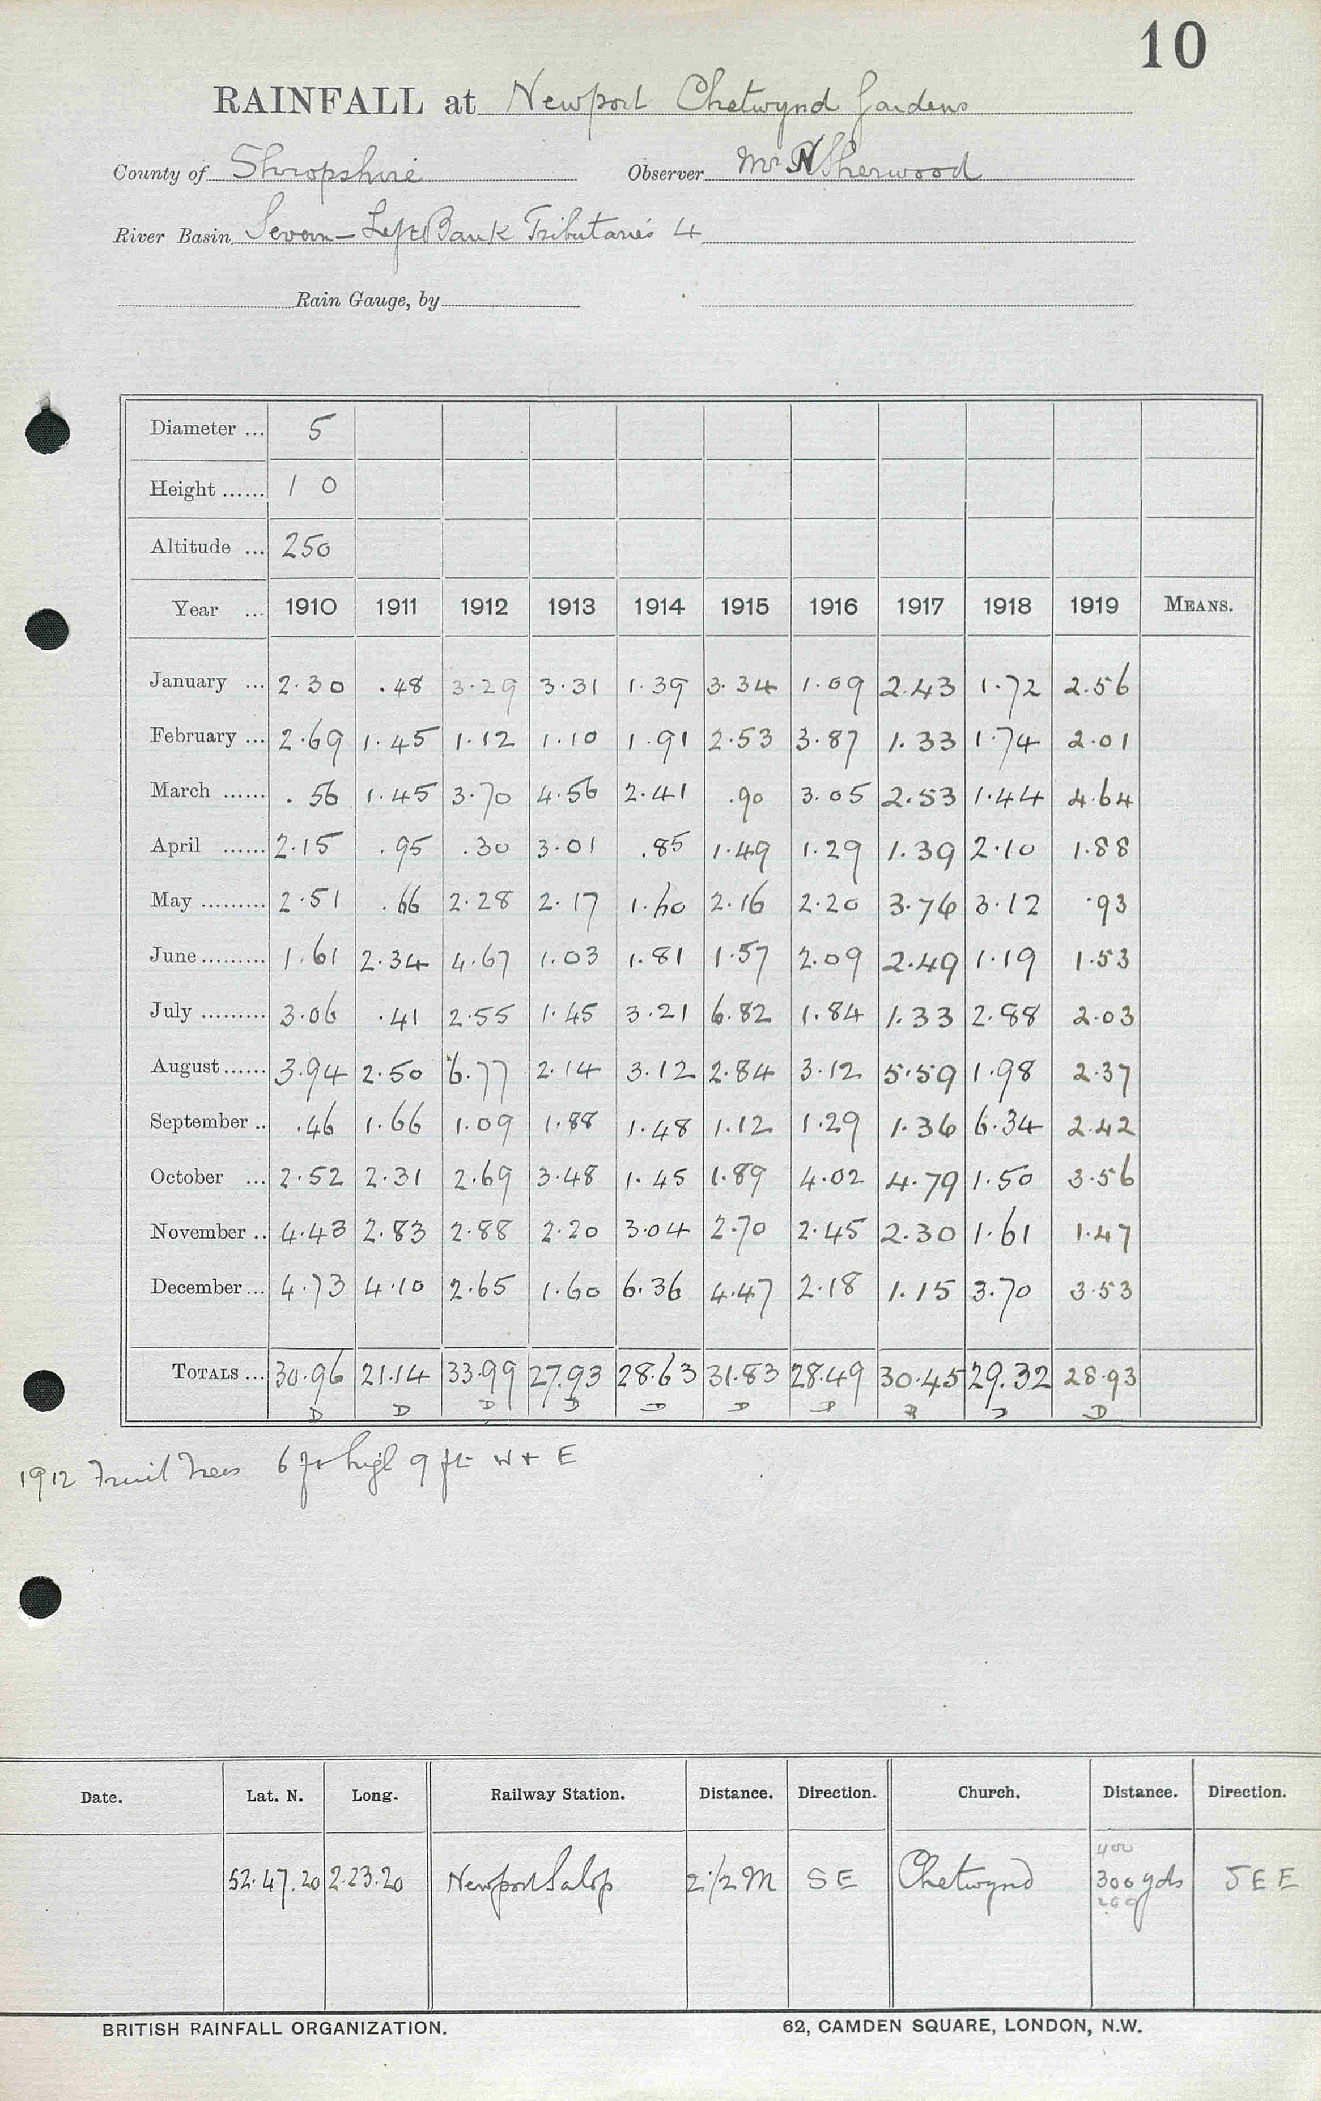 10
RAINFALL at Newport Chetwynd Gardens
County of Shropshire Observer Mr N Sherwood
River Basin Severn - Left Bank Tributaries 4
Rain Gauge, by
Diameter ... 5
Height ...... 1 0
Altitude ... 250
Year ... 1910 1911 1912 1913 1914 1915 1916 1917 1918 1919 MEANS.
January ... 2.30 .48 3.29 3.31 1.39 3.34 1.09 2.43 1.72 2.56
February ... 2.69 1.45 1.12 1.10 1.91 2.53 3.87 1.33 1.74 2.01
March ...... .56 1.45 3.70 4.56 2.41 .90 3.05 2.53 1.44 4.64
April ...... 2.15 .95 .30 3.01 .85 1.49 1.29 1.39 2.10 1.88
May ......... 2.51 .66 2.28 2.17 1.60 2.16 2.20 3.76 3.12 .93
June ......... 1.61 2.34 4.67 1.03 1.81 1.57 2.09 2.49 1.19 1.53
July ......... 3.06 .41 2.55 1.45 3.21 6.82 1.84 1.33 2.88 2.03
August ...... 3.94 2.50 6.77 2.14 3.12 2.84 3.12 5.59 1.98 2.37
September .. .46 1.66 1.09 1.88 1.48 1.12 1.29 1.36 6.34 2.42
October ... 2.52 2.31 2.69 3.48 1.45 1.89 4.02 4.79 1.50 3.56
November .. 4.43 2.83 2.88 2.20 3.04 2.70 2.45 2.30 1.61 1.47
December ... 4.73 4.10 2.65 1.60 6.36 4.47 2.18 1.15 3.70 3.53
TOTALS ... 30.96 21.14 33.99 27.93 28.63 31.83 28.49 30.45 29.32 28.93
D D D D D D D D D D
1912 Fruit Trees 6 ft high 9 ft W + E
Date. Lat. N. Long. Railway Station. Distance. Direction. Church. Distance. Direction.
400
52.47.20 2.23.20 Newport Salop 2 1/2 M SE Chetwynd 300 yds SEE
200
BRITISH RAINFALL ORGANIZATION. 62, CAMDEN SQUARE, LONDON, N.W.